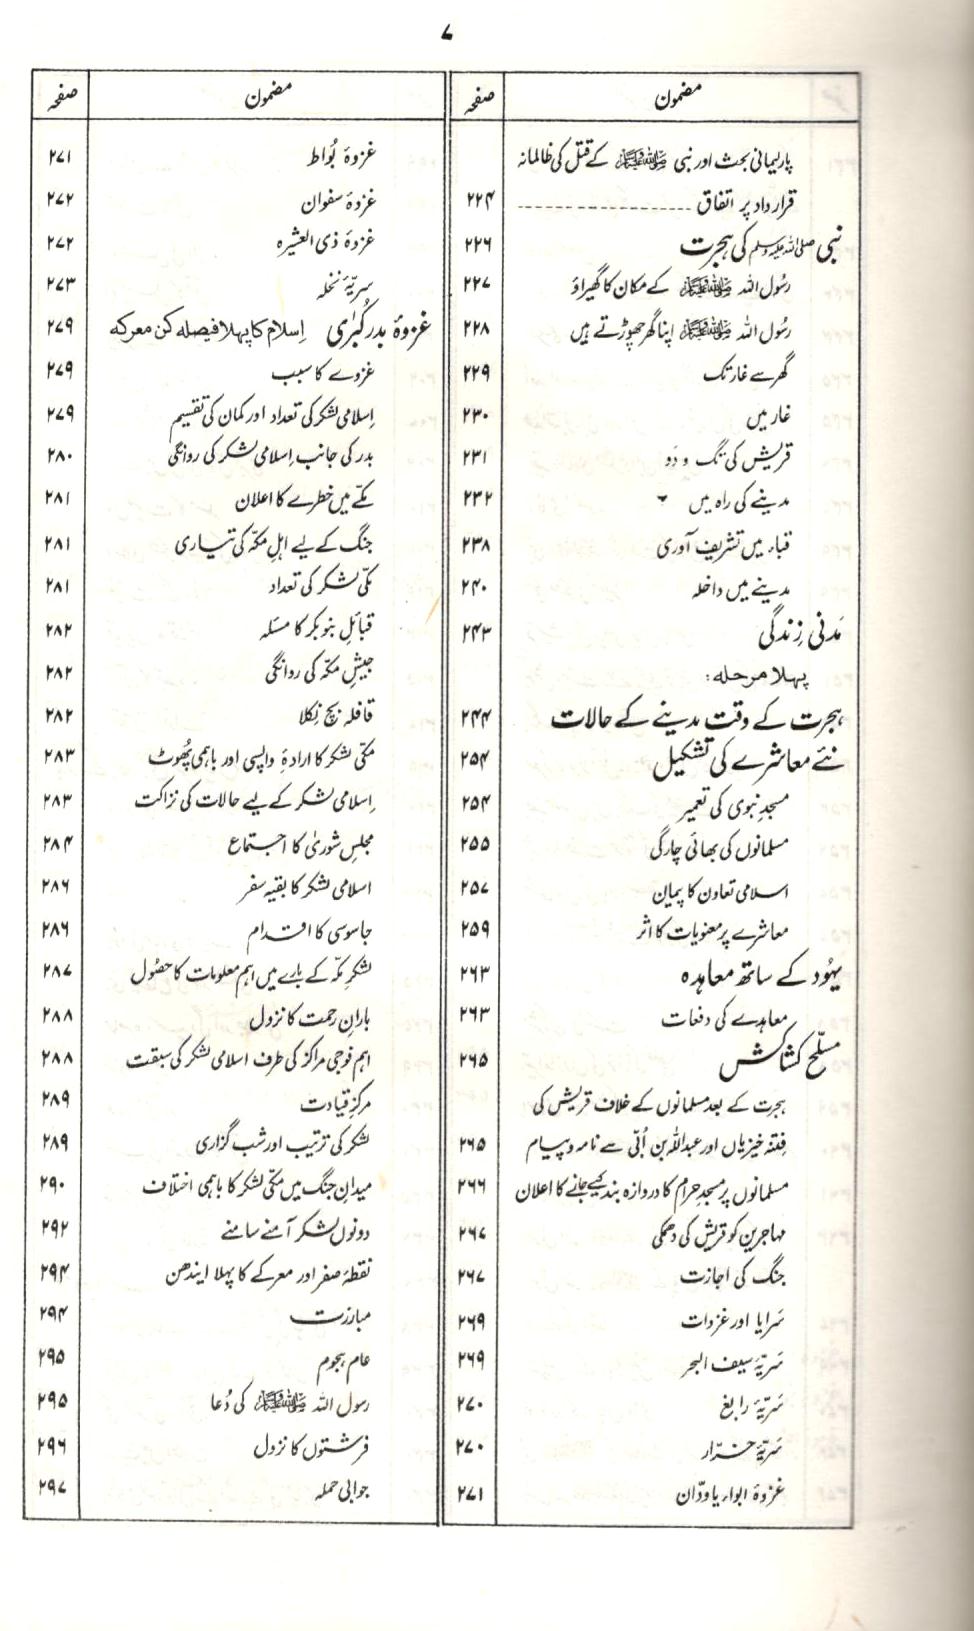 ۷
مضمون صفحہ
پارلیمانی بحث اور نبی ﷺ کے قتل کی ظالمانہ
قرارداد پر اتفاق ---------------- ۲۲۴
نبی صلی اللہ علیہ وسلم کی ہجرت ۲۲۶
رسُول اللہ ﷺ کے مکان کا گھیراؤ ۲۲۷
رسُول اللہ ﷺ اپنا گھر چھوڑتے ہیں ۲۲۸
گھر سے غار تک ۲۲۹
غار میں ۲۳۰
قریش کی تگ و دَو ۲۳۱
مدینے کی راہ میں ۲۳۲
قباء میں تشریف آوری ۲۳۸
مدینے میں داخلہ ۲۴۰
مَدنی زِندگی ۲۴۳
پہلا مرحلہ:
ہجرت کے وقت مدینے کے حالات ۲۴۴
نئے معاشرے کی تشکیل ۲۵۴
مسجدِ نبوی کی تعمیر ۲۵۴
مسلمانوں کی بھائی چارگی ۲۵۵
اسلامی تعاون کا پیمان ۲۵۷
معاشرے پر معنویات کا اثر ۲۵۹
یہُود کے ساتھ معاہدہ ۲۶۳
معاہدے کی دفعات ۲۶۳
مسلّح کشاکش ۲۶۵
ہجرت کے بعد مسلمانوں کے خلاف قریش کی
فِتنہ خیزیاں اور عبداللہ بن اُبّی سے نامہ و پیام ۲۶۵
مسلمانوں پر مسجدِ حرام کا دروازہ بند کیے جانے کا اعلان ۲۶۶
مہاجرین کو قریش کی دھمکی ۲۶۷
جنگ کی اجازت ۲۶۷
سَرایا اور غزوات ۲۶۹
سَریّۂ سیف البحر ۲۶۹
سَریّۂ رابغ ۲۷۰
سَریّۂ خرّار ۲۷۰
غزوۂ ابواء یا ودّان ۲۷۱
مضمون صفحہ
غزوۂ بُواط ۲۷۱
غزوۂ سفوان ۲۷۲
غزوۂ ذی العشیرہ ۲۷۲
سریّۂ نخلہ ۲۷۳
غزوۂ بدر کُبریٰ اِسلام کا پہلا فیصلہ کن معرکہ ۲۷۹
غزوے کا سبب ۲۷۹
اِسلامی لشکر کی تعداد اور کمان کی تقسیم ۲۷۹
بدر کی جانب اِسلامی لشکر کی روانگی ۲۸۰
مکّے میں خطرے کا اعلان ۲۸۱
جنگ کے لیے اہلِ مکّہ کی تیاری ۲۸۱
مکّی لشکر کی تعداد ۲۸۱
قبائلِ بنو بکر کا مسئلہ ۲۸۲
جیشِ مکّہ کی روانگی ۲۸۲
قافلہ بچ نِکلا ۲۸۲
مکّی لشکر کا ارادۂ واپسی اور باہمی پھُوٹ ۲۸۳
اِسلامی لشکر کے لیے حالات کی نزاکت ۲۸۳
مجلسِ شوریٰ کا اجتماع ۲۸۴
اسلامی لشکر کا بقیہ سفر ۲۸۶
جاسوسی کا اقدام ۲۸۶
لشکرِ مکّہ کے بارے میں اہم معلومات کا حصُول ۲۸۷
بارانِ رحمت کا نزول ۲۸۸
اہم فوجی مراکز کی طرف اسلامی لشکر کی سبقت ۲۸۸
مرکزِ قیادت ۲۸۹
لشکر کی ترتیب اور شب گزاری ۲۸۹
میدانِ جنگ میں مکّی لشکر کا باہمی اختلاف ۲۹۰
دونوں لشکر آمنے سامنے ۲۹۲
نقطۂ صفر اور معرکے کا پہلا ایندھن ۲۹۴
مبارزت ۲۹۴
عام ہجوم ۲۹۵
رسول اللہ ﷺ کی دُعا ۲۹۵
فرشتوں کا نزول ۲۹۶
جوابی حملہ ۲۹۷